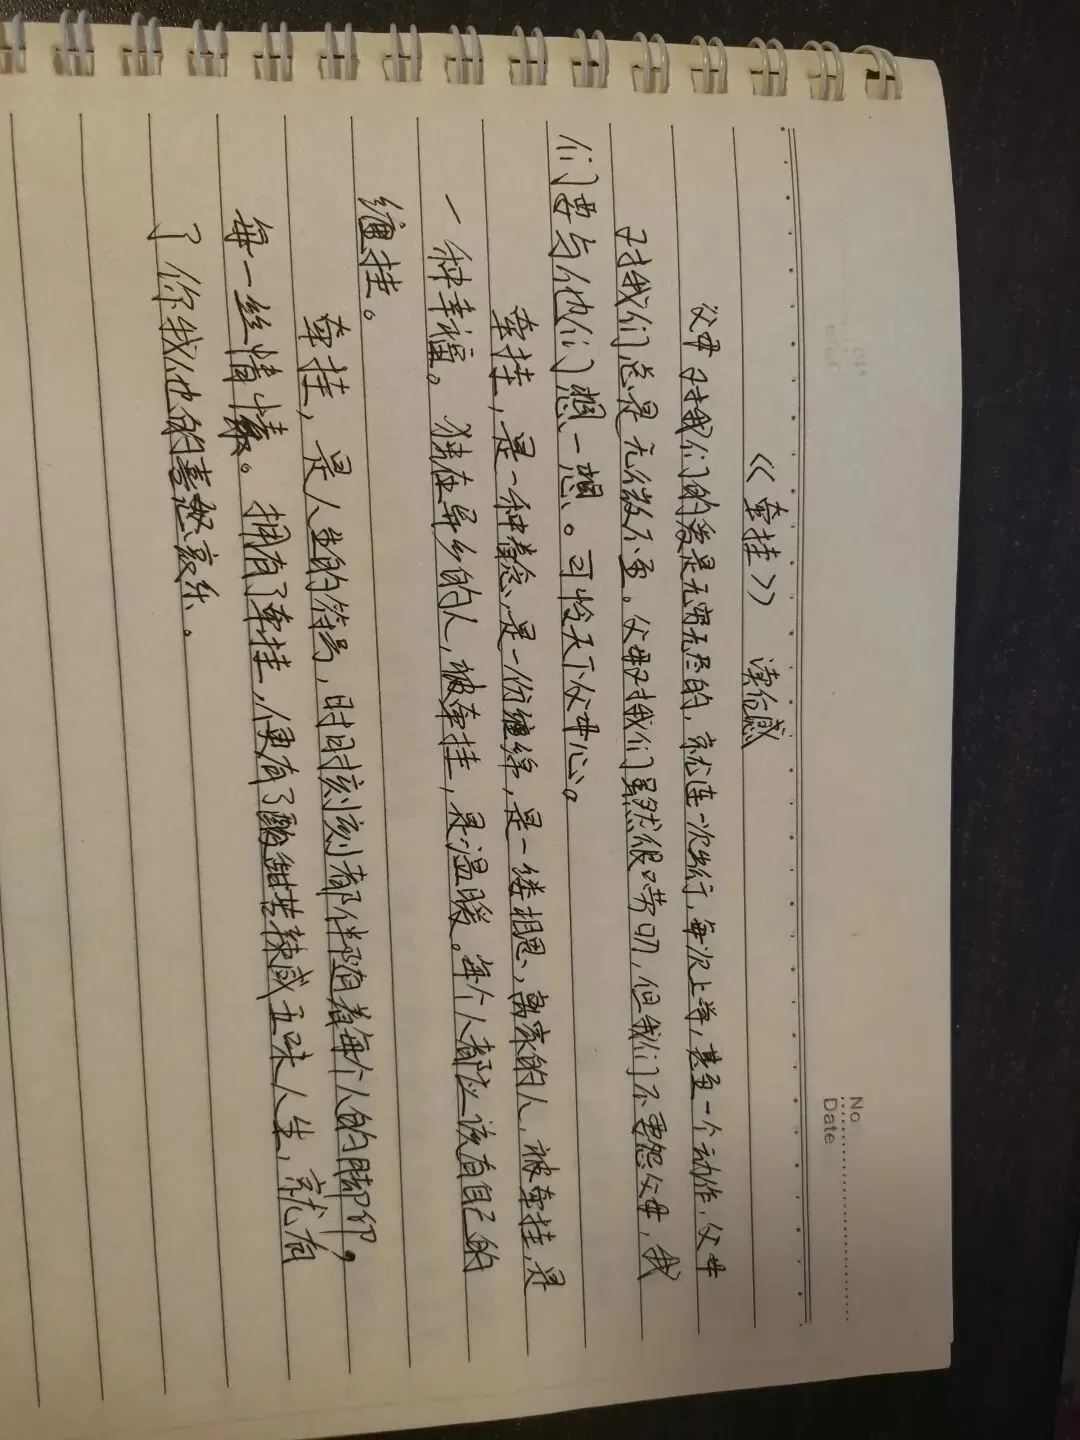 No
Date
《牵挂》 读后感
父母对我们的爱是无穷无尽的，就连一次出行，每次上学，甚至一个动作，父母
对我们总是无微不至。父母对我们虽然很唠叨，但我们不要怨父母，我
们要与他们想一想。可怜天下父母心。
牵挂，是一种挂念，是一份缠绵，是一缕相思，离家的人，被牵挂，是
一种幸福。独在异乡的人，被牵挂，是温暖。每个人都应该有自己的
缠挂。
牵挂，是人生的符号，时时刻刻都伴随着每个人的脚印，
每一丝情缘。拥有了牵挂，便有了酸甜苦辣咸五味人生，就有
了你我他的喜怒哀乐。